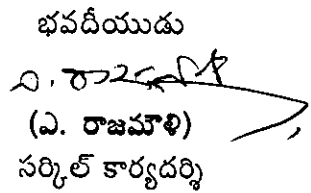 భవదీయుడు
ఎ. రాజమౌళి
(ఎ. రాజమౌళి)
సర్కిల్ కార్యదర్శి